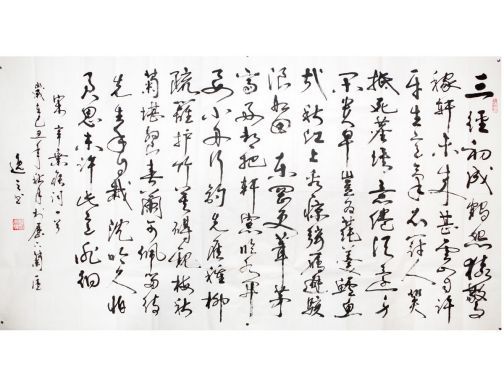 三徑初成鶴怨猿驚
稼軒未來甚雲山自許
平生意氣衣冠人笑
抵死塵埃意倦須還身
閑貴早豈為蓴羹鱸
哉秋江上看驚弦雁避駭
浪船回 東岡更葺茅
齋好都把軒窗臨水開
要小舟行釣先應種柳
疏籬护竹莫礙觀梅秋
菊堪餐春蘭可佩留待
先生手自栽沈吟久怕
君恩未許此意徘徊
宋辛棄疾詞一首